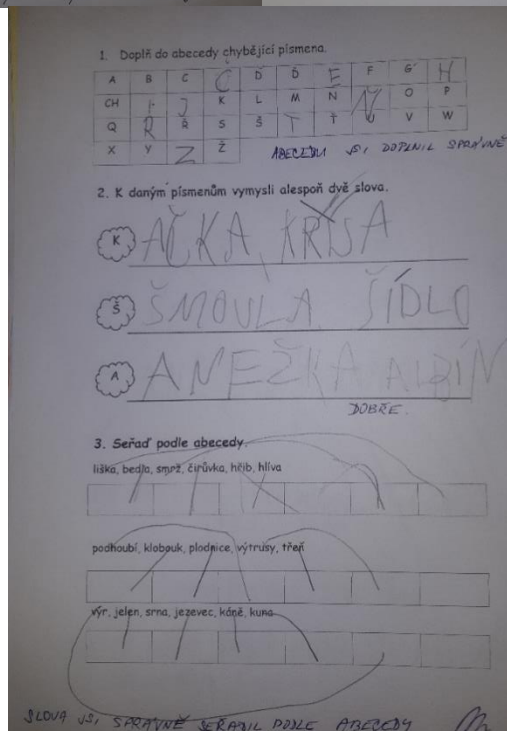 1. Doplň do abecedy chybějící písmena.
A B C Č Ď Ď E F G H
CH I J K L M N Ň O P
Q R Ř S Š T Ť V W
X Y Z Ž
ABECEDU JSI DOPLNIL SPRÁVNĚ
2. K daným písmenům vymysli alespoň dvě slova.
K AČKA, KRYSA
Š ŠMOULA ŠÍDLO
A ANEŽKA ALBÍN
DOBŘE.
3. Seřaď podle abecedy.
liška, bedla, smrž, čirůvka, hřib, hlíva
podhoubí, klobouk, plodnice, výtrusy, třeň
výr, jelen, srna, jezevec, káně, kuna
SLOVA JSI SPRÁVNĚ SEŘADIL PODLE ABECEDY